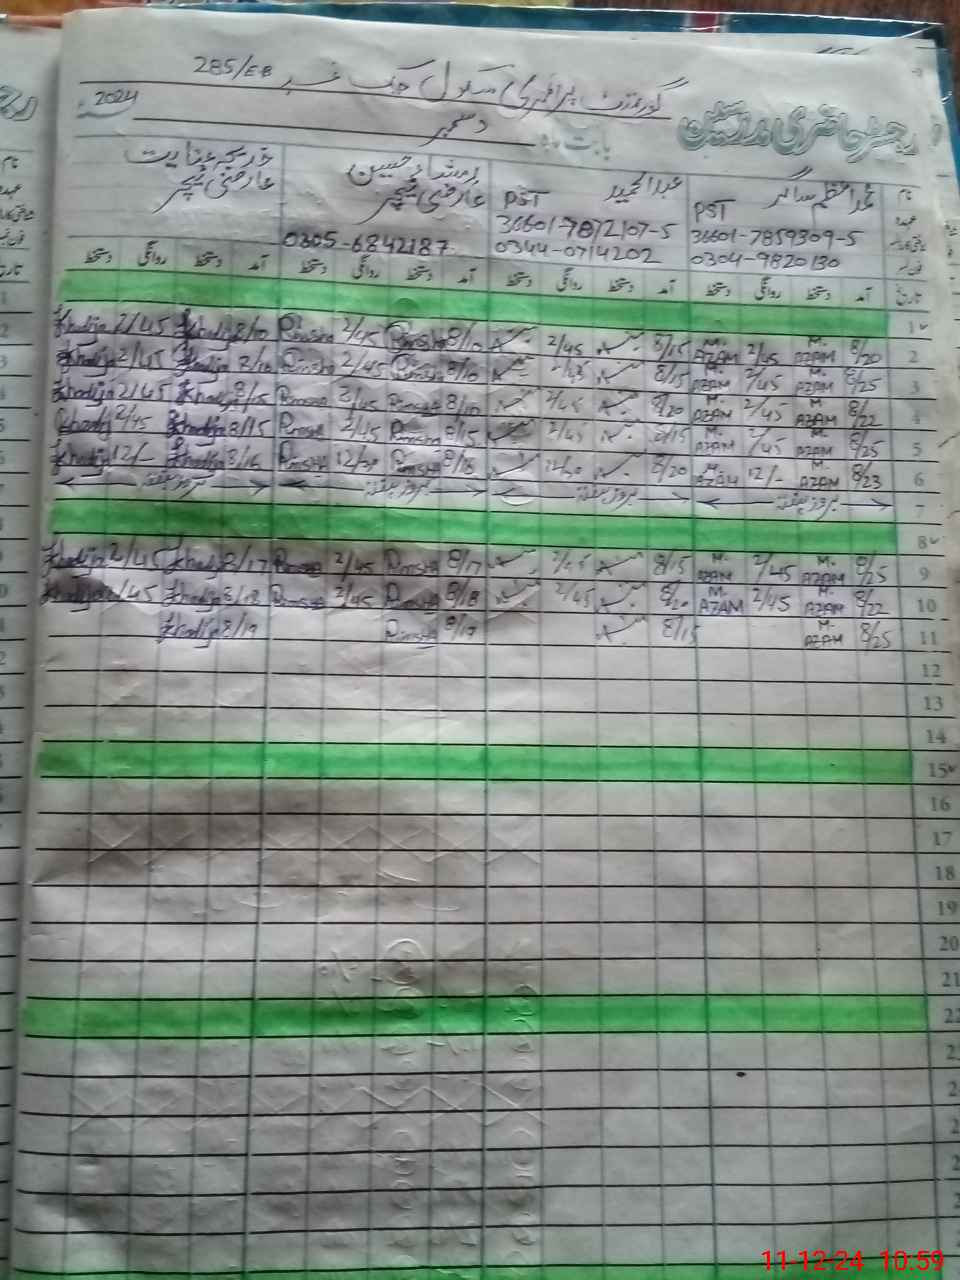 گورنمنٹ پرائمری سکول چک نمبر 285/EB
رجسٹر حاضری مدرسین
بابت ماہ دسمبر 2024
نام محمد اعظم ساگر عبدالحمید رمشاء حسین خدیجہ عنایت
عہدہ PST PST عارضی ٹیچر عارضی ٹیچر
36601-7859309-5 36601-7872107-5
فون نمبر 0304-9820130 0344-0714202 0305-6842187
تاریخ آمد دستخط روانگی دستخط آمد دستخط روانگی دستخط آمد دستخط روانگی دستخط آمد دستخط روانگی دستخط
1
2 8/20 M. AZAM 2/45 M. AZAM 8/15 2/45 8/10 Rimsha 2/45 Rimsha 8/10 Khadija 2/45 Khadija
3 8/25 M. AZAM 2/45 M. AZAM 8/15 2/45 8/10 Rimsha 2/45 Rimsha 8/10 Khadija 2/45 Khadija
4 8/22 M. AZAM 2/45 M. AZAM 8/20 2/45 8/10 Rimsha 2/45 Rimsha Khadija 2/45 Khadija
5 8/25 M. AZAM 2/45 M. AZAM 8/15 2/45 8/15 Rimsha 2/45 Rimsha 8/15 Khadija 2/45 Khadija
6 8/23 M. AZAM 12/- M. AZAM 8/20 Rimsha Rimsha 8/16 Khadija 12/- Khadija
7 بروز ہفتہ بروز ہفتہ بروز ہفتہ بروز ہفتہ
8
9 8/25 M. AZAM 2/45 M. AZAM 8/15 2/45 8/17 Rimsha 2/45 Rimsha 8/17 Khadija 2/45 Khadija
10 8/22 M. AZAM 2/45 M. AZAM 8/20 2/45 8/18 Rimsha 2/45 Rimsha 8/18 Khadija 2/45 Khadija
11 8/25 M. AZAM 8/15 8/19 Rimsha 8/19 Khadija
12
13
14
15
16
17
18
19
20
21
22
11-12-24 10:59